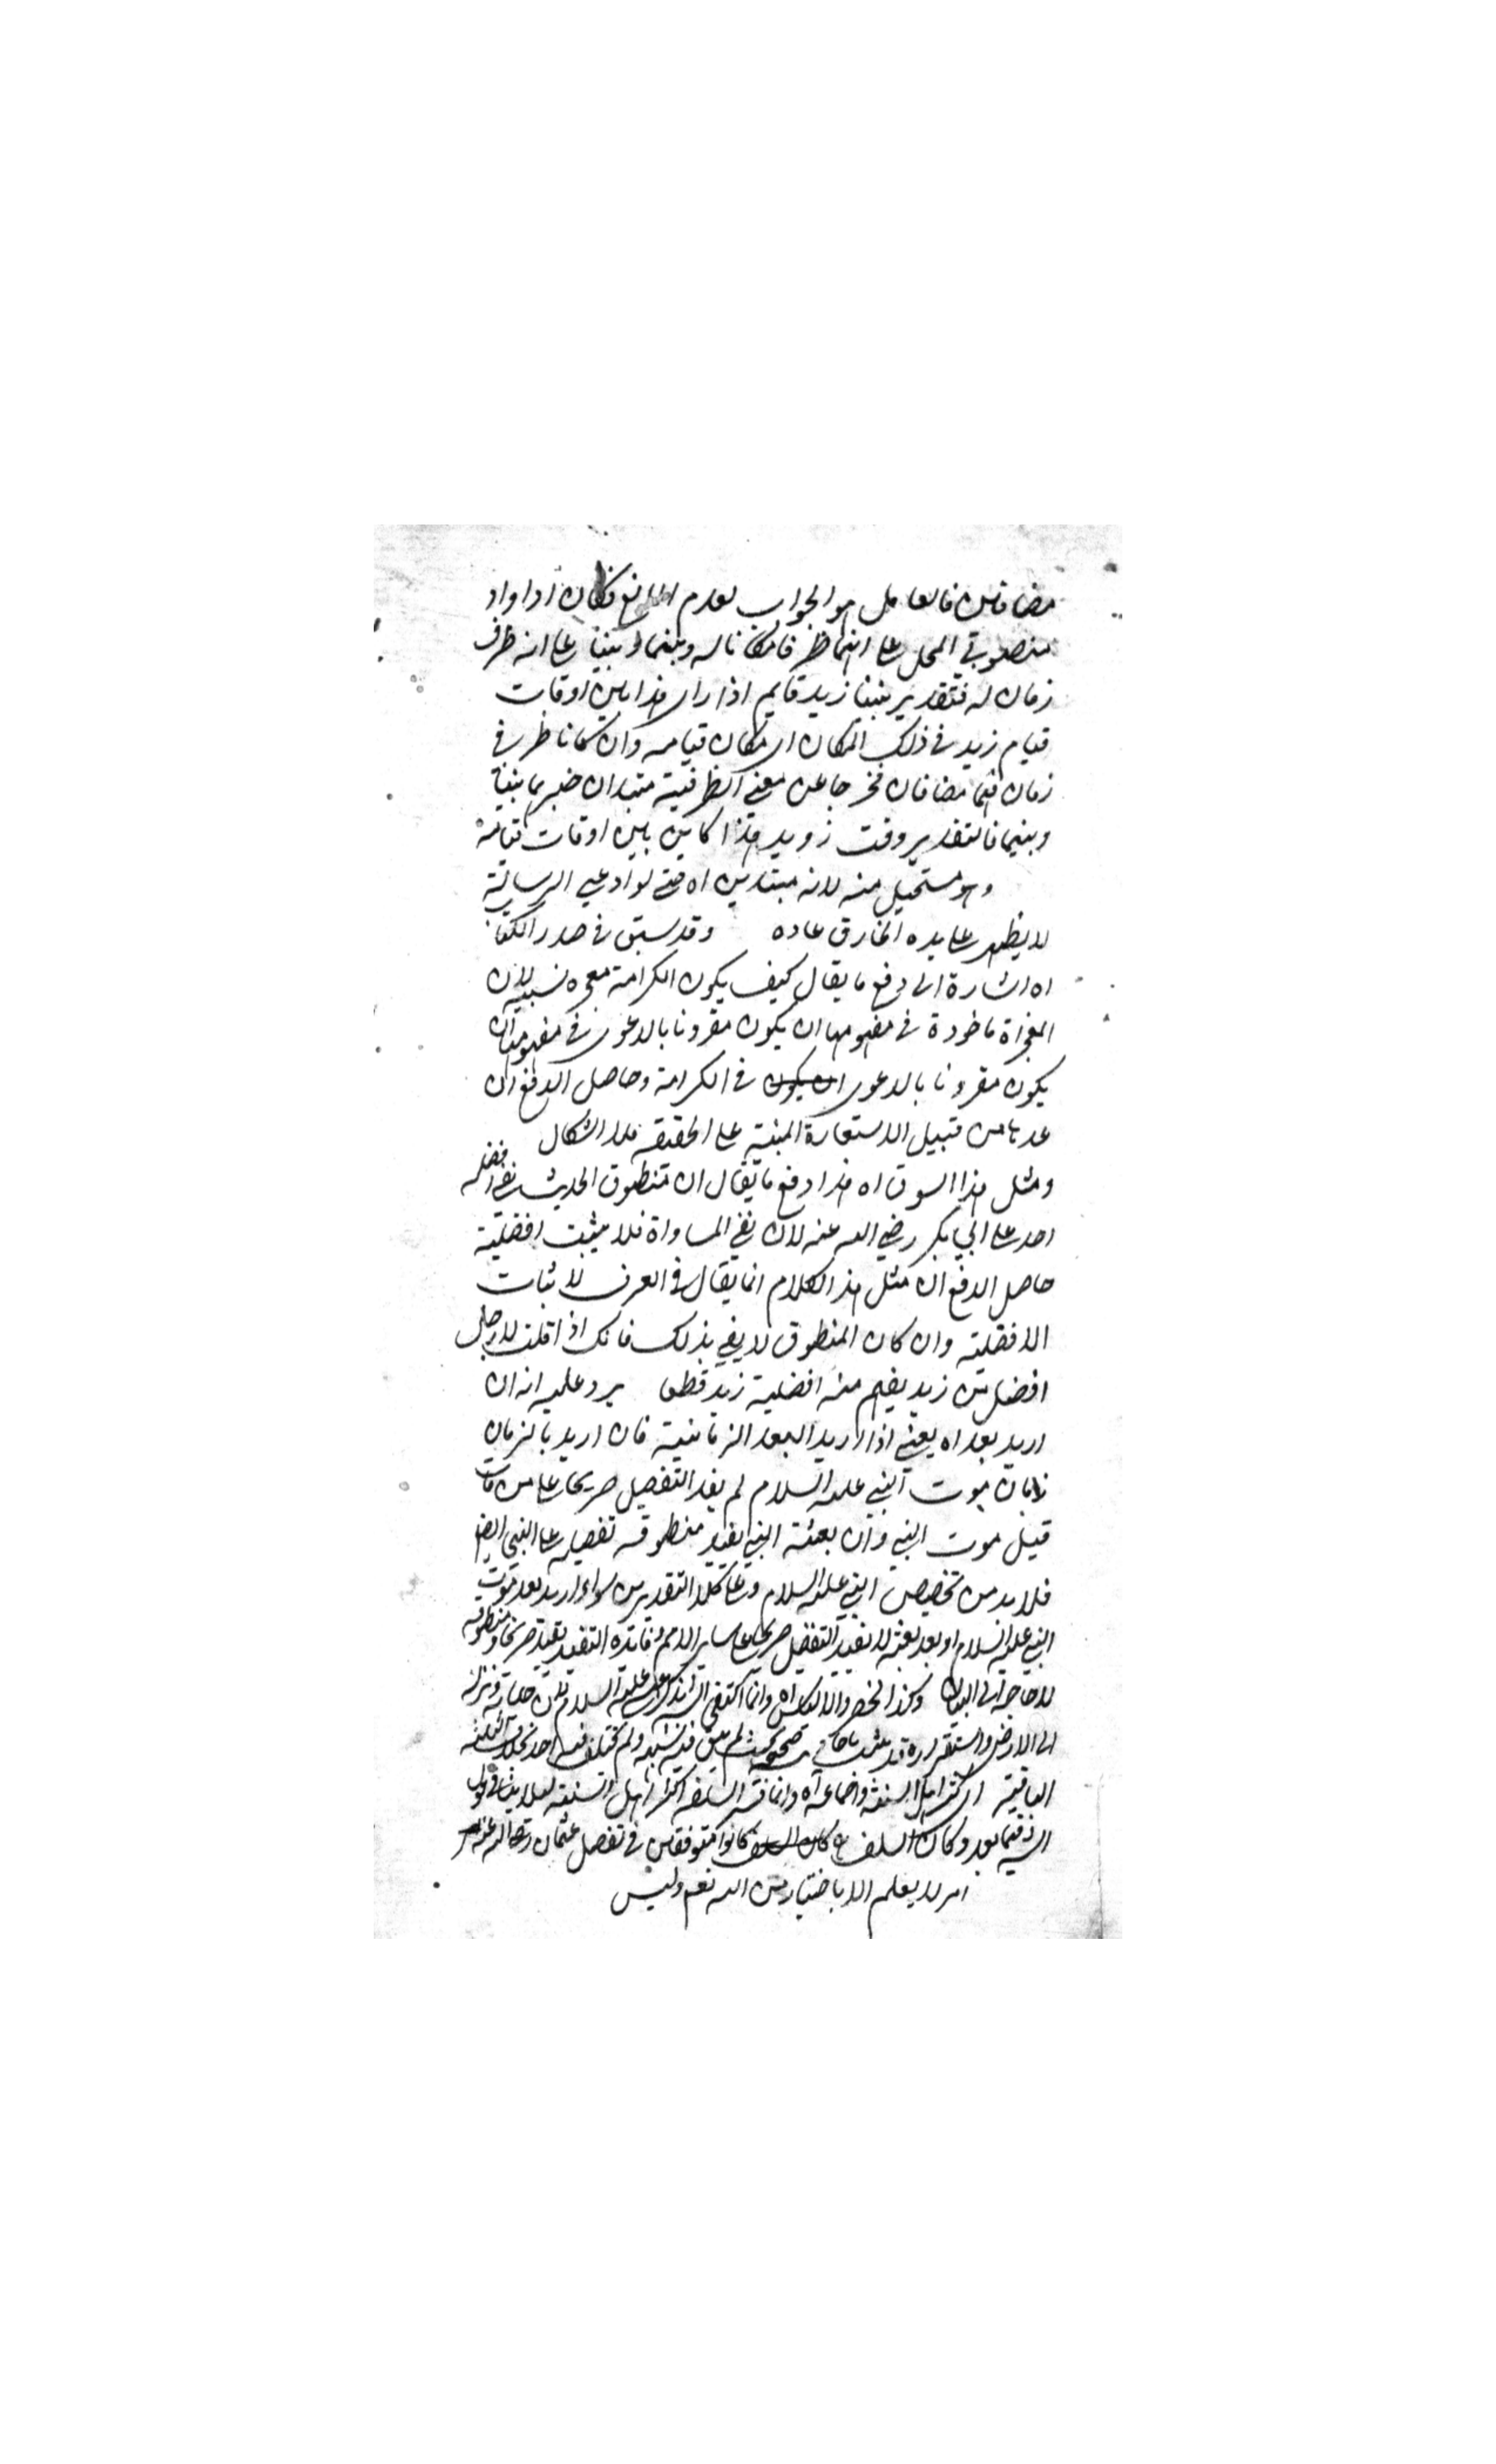 مضافين فالعامل هو الجواب لعدم المانع فكان اذا واذ
منصوبي المحل على انهما ظرفا مكانا له وبينما وبينا على انه ظرف
زمان له فتقدير بينا زيد قايم اذا راى هذا بين اوقات
قيام زيد في ذلك المكان اى مكان قيامه وان كانا ظرفي
زمان فهما مضافان مخرجا عن معنى الظرفية مبتدان خبرهما بينا
وبينما فالتقدير وقت زويد هذا كاين بين اوقات قيامه
وهو مستحيل منه لانه متدين اه حتى لو ادعى الرسالة
لا يظهر على يده الخارق عادة وقد سبق في صدر الكتاب
اه اشارة الى دفع ما يقال كيف يكون الكرامة معجزه لنبيه لان
المعجزاة ماخوذة في مفهومها ان يكون مقرونا بالدعوى في مفهومها ان
يكون مقرونا بالدعوى ان يكون في الكرامة وحاصل الدفع ان
عدها من قبيل الاستعارة المبنية على الحقيقة فلا اشكال
ومثل هذا السوق اه هذا دفع ما يقال ان منطوق الحديث نفي افضلية
احد على ابي بكر رضي الله عنه لان نفي المساواة فلا يثبت افضلية
حاصل الدفع ان مثل هذ الكلام انما يقال في العرف لاثبات
الافضلية وان كان المنطوق لا يفي بذلك فانك اذا قلت لا رجل
افضل من زيد يفهم منه افضلية زيد قطعا يرد عليه انه ان
اريد بعد اه يعني اذا اريد البعد الزمانية فان اريد بالزمان
زمان موت النبي عليه السلام لم يفد التفضيل صريحا على من مات
قبل موت النبي وان بعثة النبي يفيد منطوقه تفضيله على النبي ايضا
فلا بد من تخصيص النبي عليه السلام وعلى كلا التقديرين سواء اريد بعد موت
النبي عليه السلام او بعد بعثته لا يفيد التفضيل صريحا على ساير الامم وفائدة التقييد صريحا ومنطوقه
لا حاجة الى البيان وكذا الخضر والالياس اه وانما اكتفى بذكر عيسى عليه السلام لان حياته ونزله
الى الارض واستقراره قد ثبت باحاديث صحيحة بحيث لم يبق فيه شبهة ولم يختلف فيه احد بخلاف الثلثة
الباقية اى اكثر اهل السنة والجماعة اه وانما فسر السلف اكثر اهل السنة لئلا ينافي قول
الشه فيما بعد وكان السلف كانوا متوقفين في تفضيل عثمان رضي الله عنه
امر لا يعلم الا باختيار من الله نعم وليس